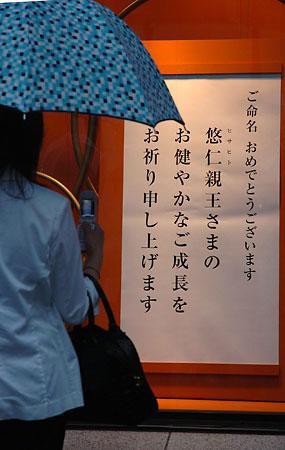 ご命名 おめでとうございます
悠仁親王さまの
ヒサヒト
お健やかなご成長を
お祈り申し上げます